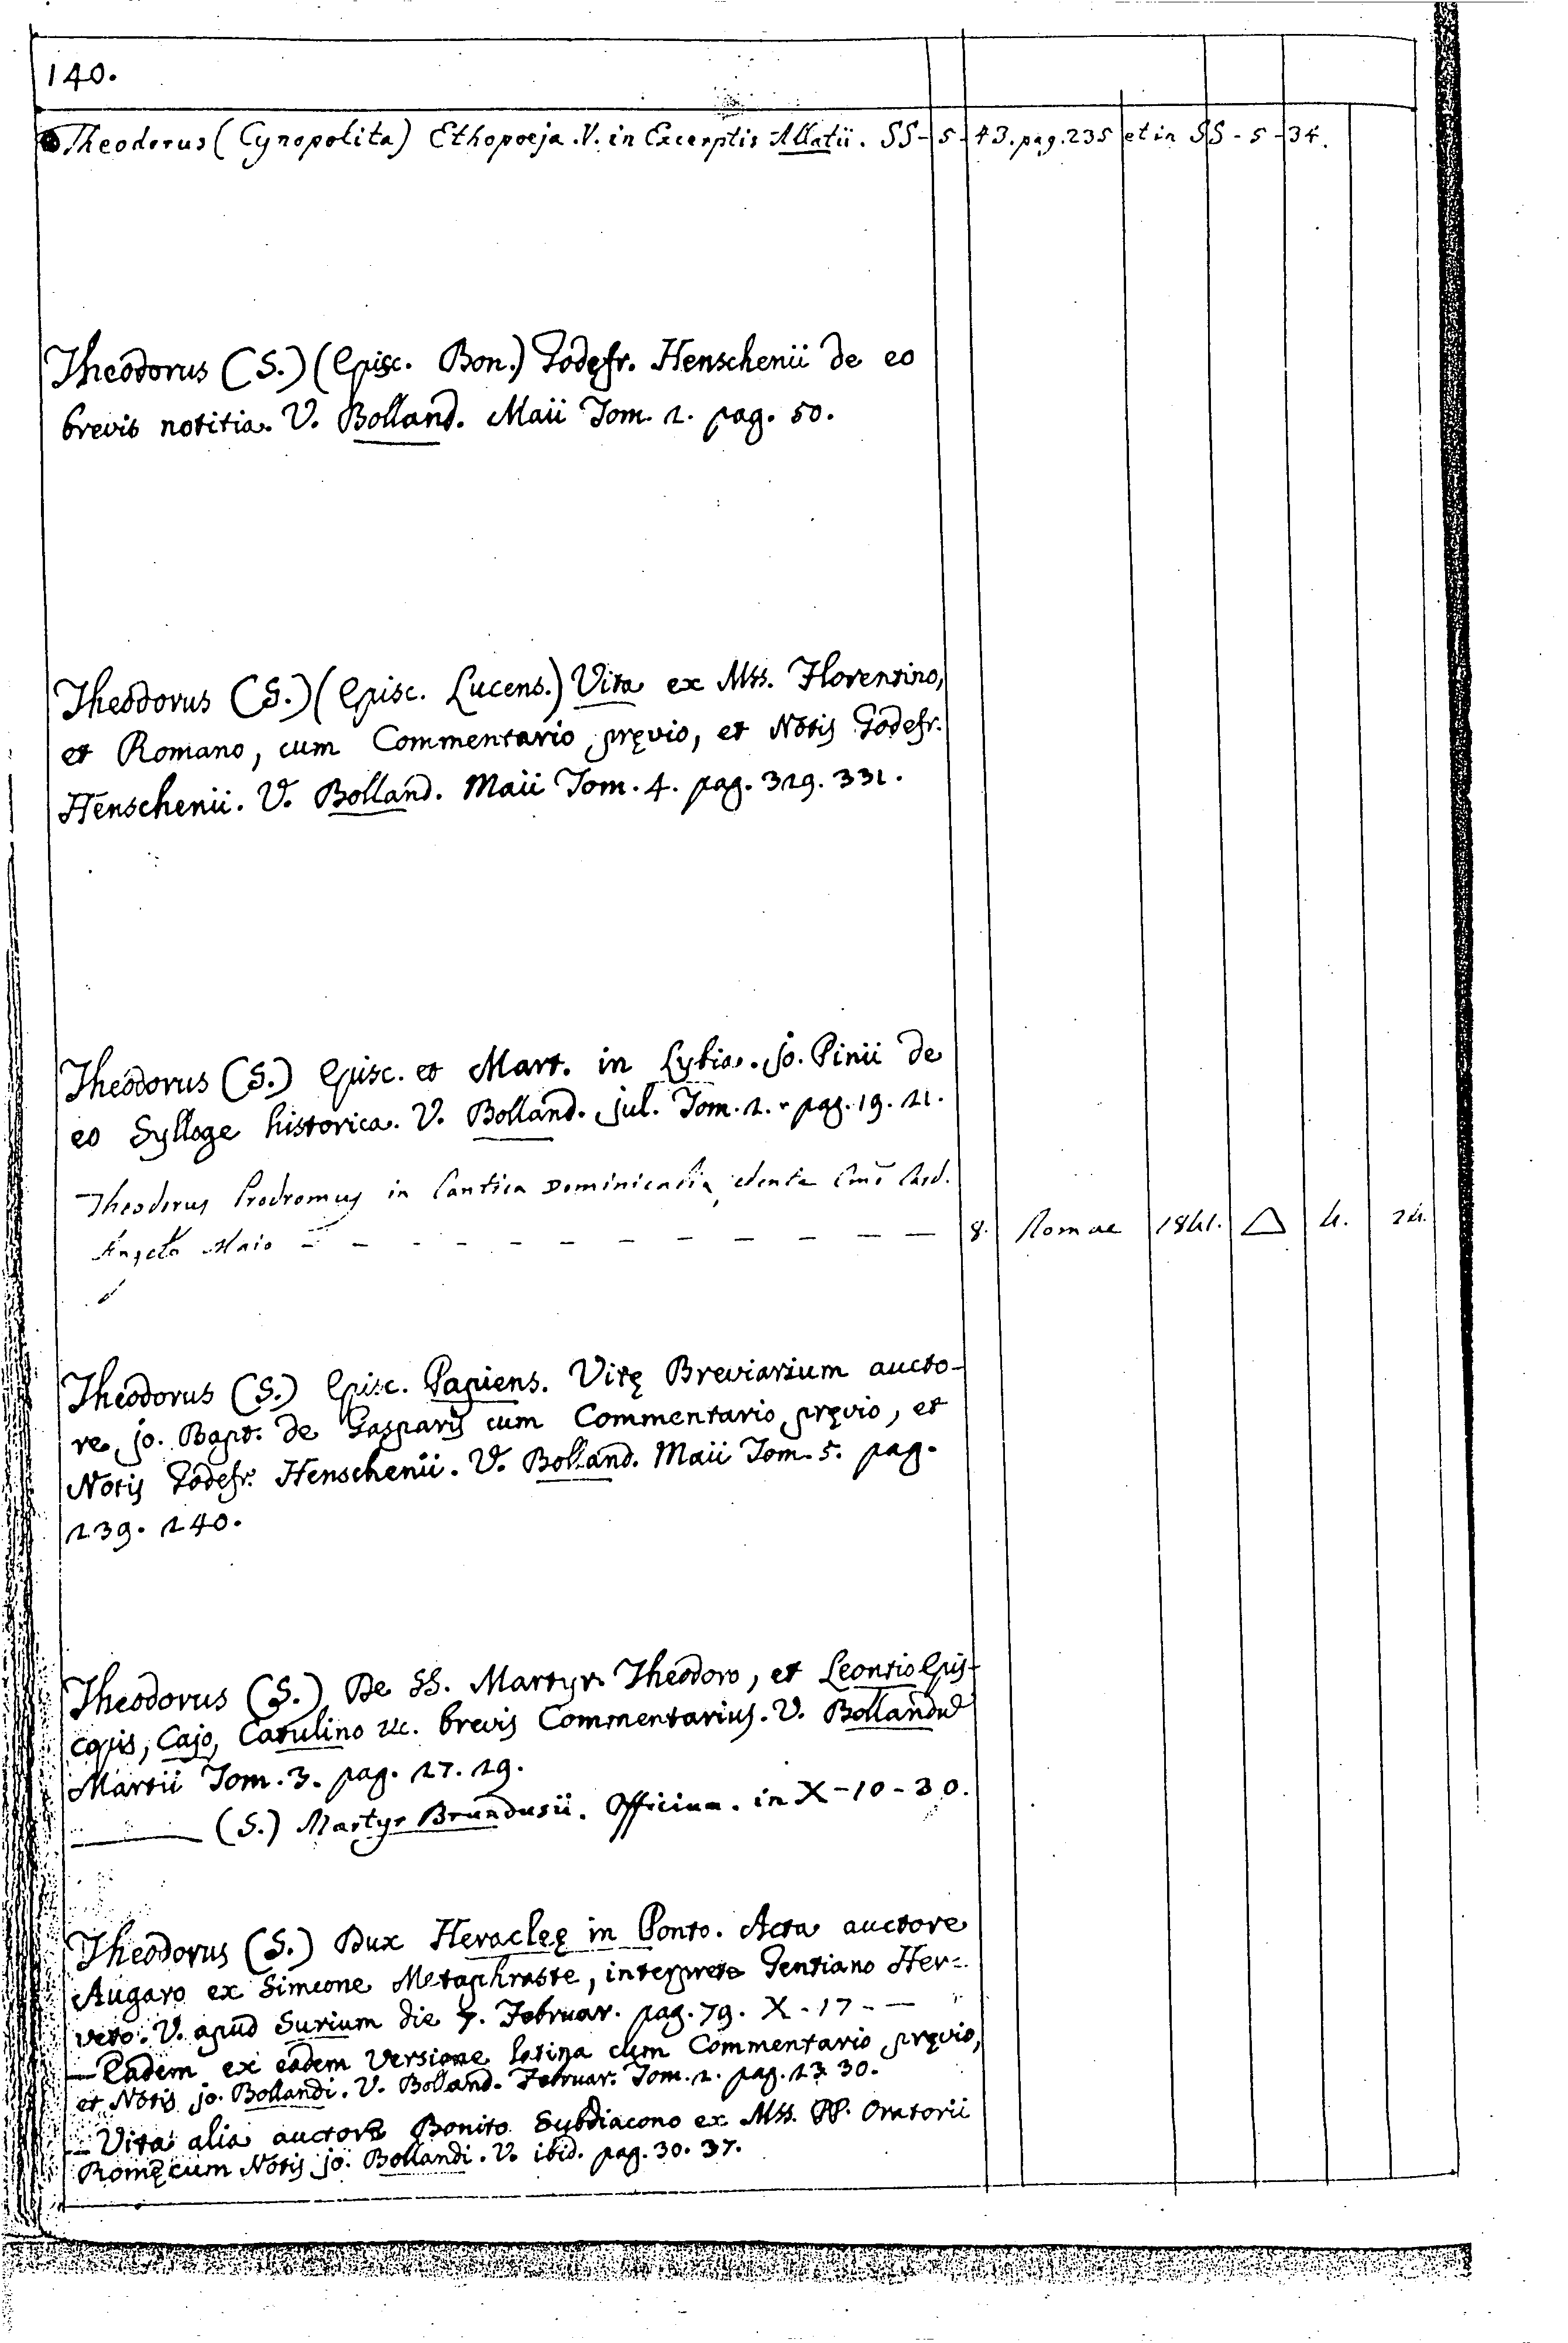 140.
Theodorus (Cynopolita) Ethopoeja. V. in Excerptis Allatii. SS-5-43. pag. 235 et in SS-5-34.
Theodorus (S.) (Episc. Bon.) Godefr. Henschenii de eo
brevis notitia. V. Bolland. Maii Tom. 1. pag. 50.
Theodorus (S.) (Episc. Lucens.) Vita ex Mss. Florentino,
et Romano, cum Commentario pręvio, et Notis Godefr.
Henschenii. V. Bolland. Maii Tom. 4. pag. 329. 331.
Theodorus (S.) Episc. et Mart. in Lybia. Jo. Pinii de
eo Sylloge historica. V. Bolland. Jul. Tom. 2. pag. 19. 21.
Theodorus Prodromus in Cantica Dominicalia, edente Card.
Angelo Maio - - - - - - - - - - - - 8. Romae 1841. △ 4. 24.
Theodorus (S.) Episc. Papiens. Vitę Breviarium aucto-
re Jo. Bapt. de Gasparis cum Commentario pręvio, et
Notis Godefr. Henschenii. V. Bolland. Maii Tom. 5. pag.
139. 140.
Theodorus (S.) De SS. Martyr. Theodoro, et Leontio Epis-
copis, Cajo, Catulino &c. brevis Commentarius. V. Bolland
Martii Tom. 3. pag. 17. 19.
——— (S.) Martyr Brundusii. Officium. in X-10-30.
Theodorus (S.) Dux Heracleę in Ponto. Acta auctore
Augaro ex Simeone Metaphraste, interprete Gentiano Her-
veto. V. apud Surium die 7. Februar. pag. 79. X-17- —
— Eadem ex eadem Versione latina cum Commentario pręvio,
et Notis Jo. Bollandi. V. Bolland. Februar. Tom. 2. pag. 23 30.
— Vita alia auctore Bonito Subdiacono ex Mss. PP. Oratorii
Romę cum Notis Jo. Bollandi. V. ibid. pag. 30. 37.